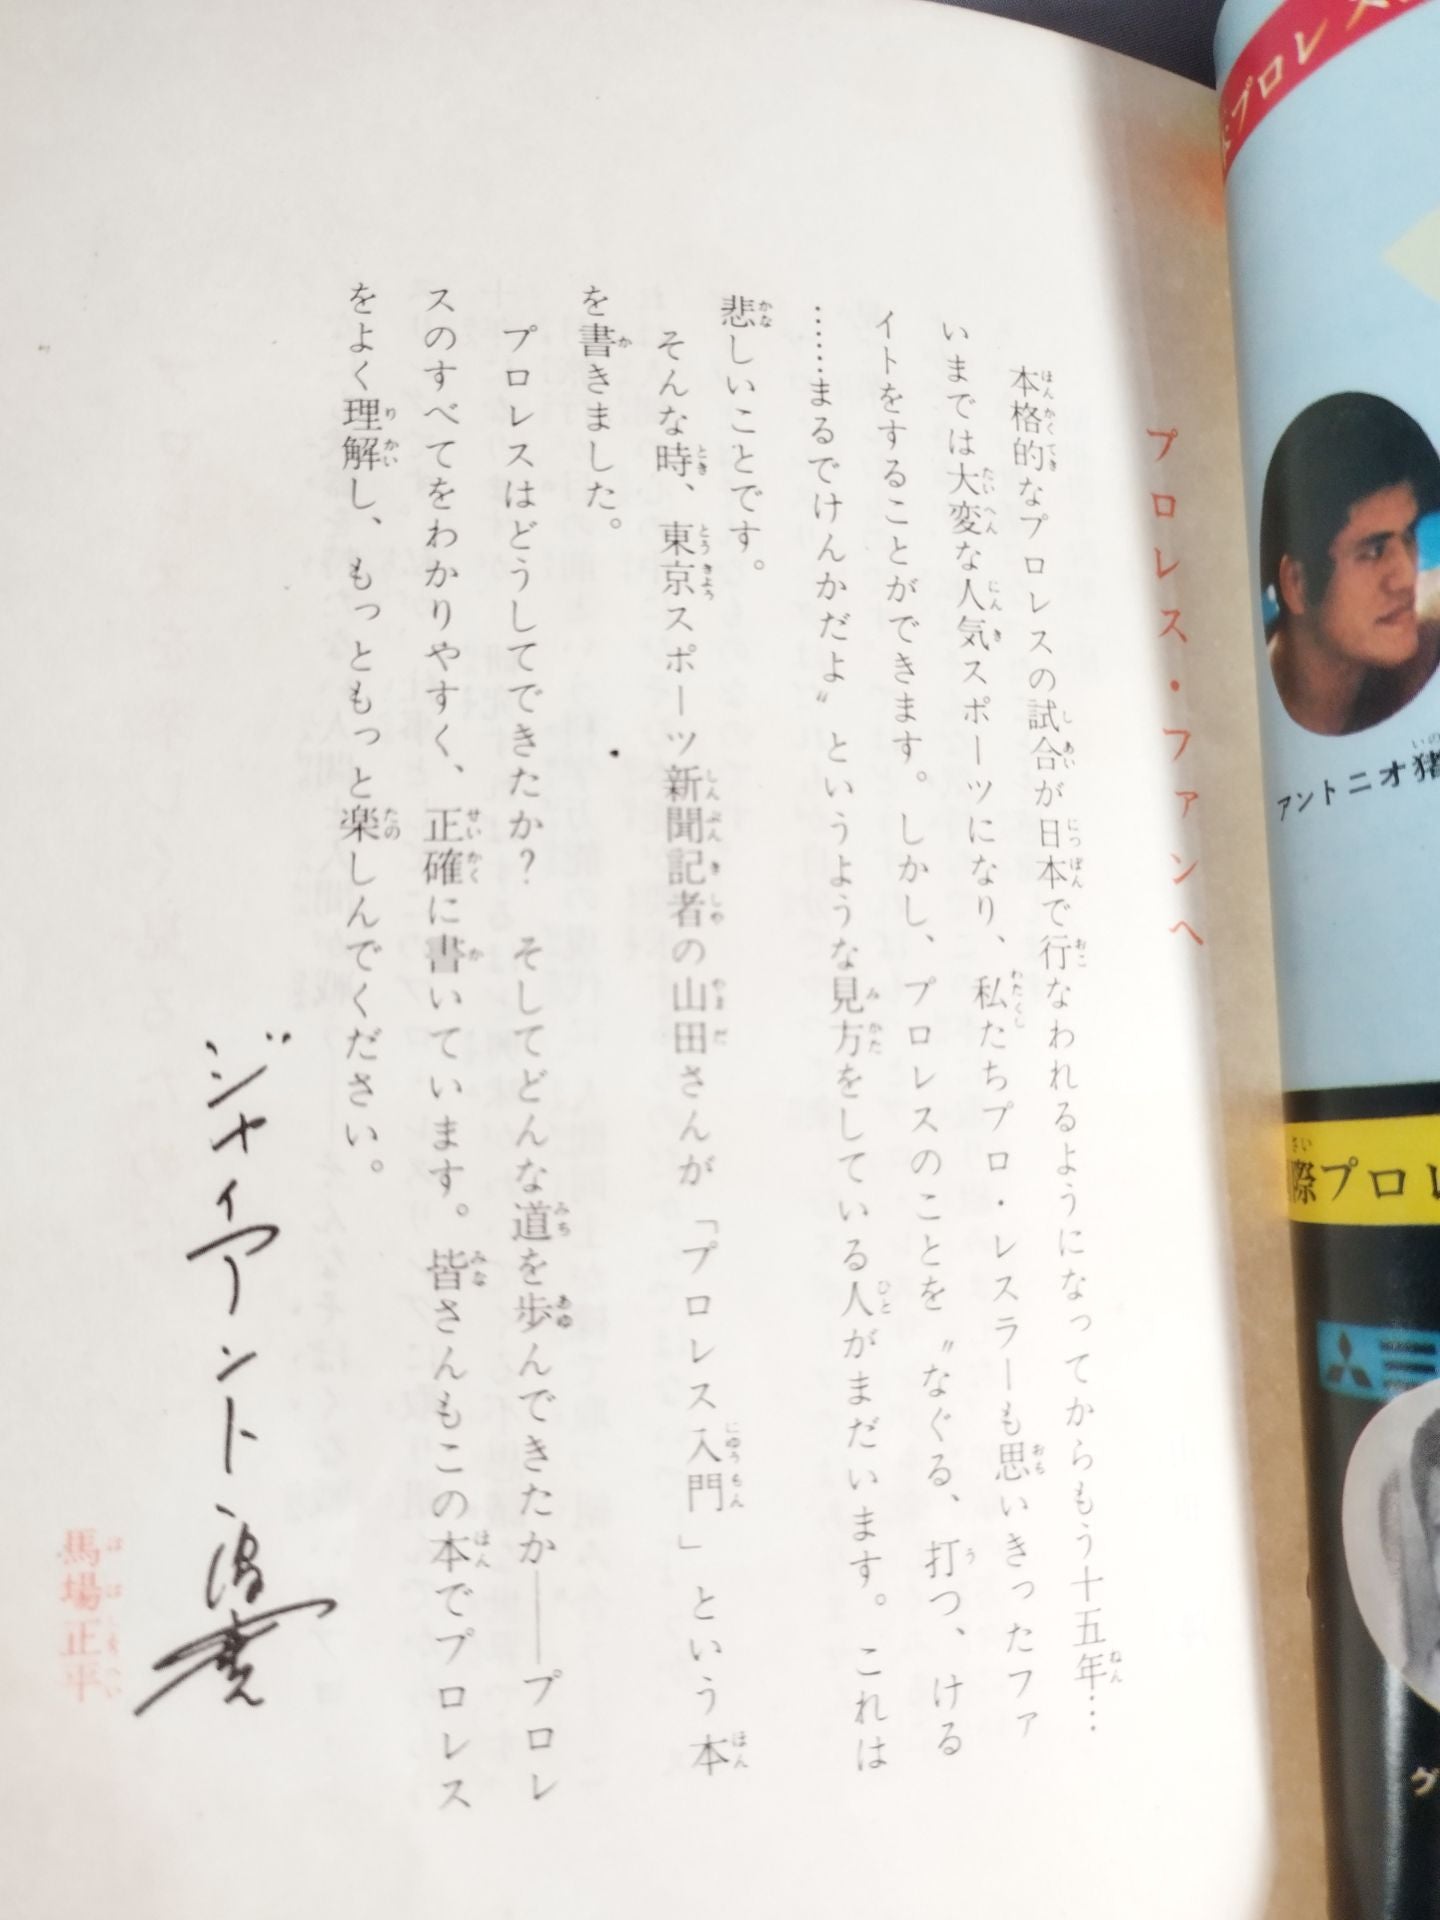 プロレス・ファンへ
本格的なプロレスの試合が日本で行なわれるようになってからもう十五年…
いまでは大変な人気スポーツになり、私たちプロ・レスラーも思いきったファ
イトをすることができます。しかし、プロレスのことを〝なぐる、打つ、ける
……まるでけんかだよ〟というような見方をしている人がまだいます。これは
悲しいことです。
そんな時、東京スポーツ新聞記者の山田さんが「プロレス入門」という本
を書きました。
プロレスはどうしてできたか？　そしてどんな道を歩んできたか――プロレ
スのすべてをわかりやすく、正確に書いています。皆さんもこの本でプロレス
をよく理解し、もっともっと楽しんでください。
ジャイアント馬場
馬場正平
プロレス
アントニオ猪
際プロレ